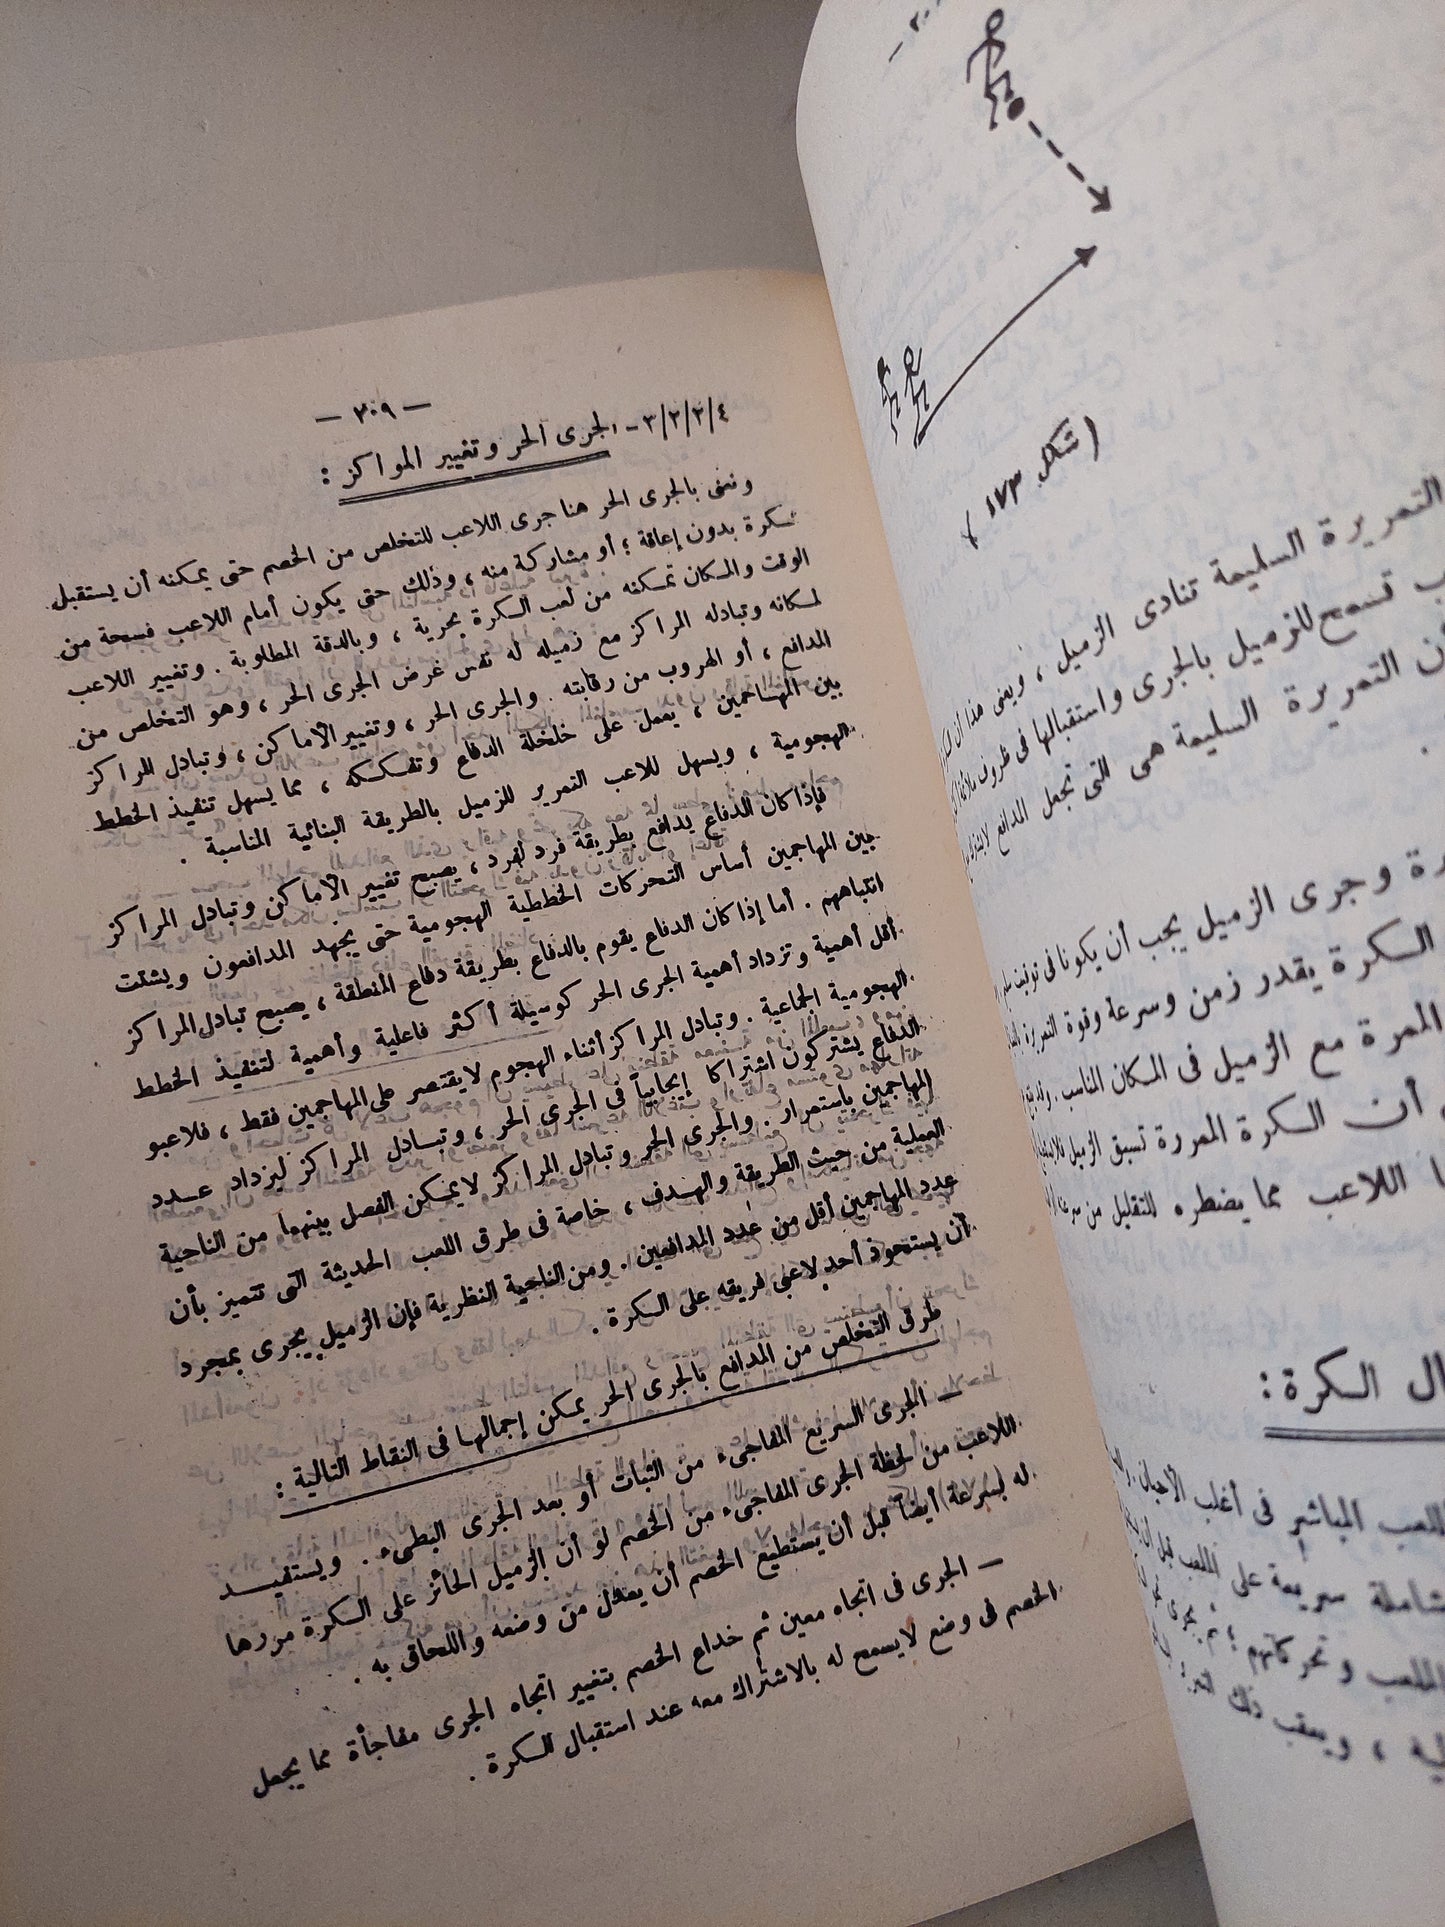 — ٣٠٩ —
٣/٢/٢/٤ - الجرى الحر وتغيير المراكز :
ونعنى بالجرى الحر هنا جرى اللاعب للتخلص من الخصم حتى يمكنه أن يستقبل
الكرة بدون إعاقة ؛ أو مشاركة منه ، وذلك حتى يكون أمام اللاعب فسحة من
الوقت والمكان تمكنه من لعب الكرة بحرية ، وبالدقة المطلوبة . وتغيير اللاعب
لمكانه وتبادله المراكز مع زميله له نفس غرض الجرى الحر ، وهو التخلص من
المدافع ، أو الهروب من رقابته . والجرى الحر ، وتغيير الأماكن ، وتبادل المراكز
بين المهاجمين ، يعمل على خلخلة الدفاع وتفككه ، مما يسهل تنفيذ الخطط
الهجومية ، ويسهل للاعب التمرير للزميل بالطريقة البنائية المناسبة .
فإذا كان الدفاع يدافع بطريقة فرد لفرد ، يصبح تغيير الأماكن وتبادل المراكز
بين المهاجمين أساس التحركات الخططية الهجومية حتى يجهد المدافعون ويشتت
انتباههم . أما إذا كان الدفاع يقوم بالدفاع بطريقة دفاع المنطقة ، يصبح تبادل المراكز
أقل أهمية وتزداد أهمية الجرى الحر كوسيلة أكثر فاعلية وأهمية لتنفيذ الخطط
الهجومية الجماعية . وتبادل المراكز أثناء الهجوم لا يقتصر على المهاجمين فقط ، فلاعبو
الدفاع يشتركون اشتراكا إيجابياً فى الجرى الحر ، وتبادل المراكز ليزداد عدد
المهاجمين باستمرار . والجرى الحر وتبادل المراكز لا يمكن الفصل بينهما من الناحية
العملية من حيث الطريقة والهدف ، خاصة فى طرق اللعب الحديثة التى تتميز بأن
عدد المهاجمين أقل من عدد المدافعين . ومن الناحية النظرية فإن الزميل يجرى بمجرد
أن يستحوذ أحد لاعبى فريقه على الكرة .
طرق التخلص من المدافع بالجرى الحر يمكن إجمالها فى النقاط التالية :
— الجرى السريع المفاجىء من الثبات أو بعد الجرى البطىء . ويستفيد
اللاعب من لحظة الجرى المفاجىء من الخصم لو أن الزميل الحائز على الكرة مررها
له بسرعة أيضاً قبل أن يستطيع الخصم أن يعدل من وضعه واللحاق به .
— الجرى فى اتجاه معين ثم خداع الخصم بتغيير اتجاه الجرى مفاجأة مما يجعل
الخصم فى وضع لا يسمح له بالاشتراك معه عند استقبال الكرة .
( شكل ١٧٣ )
التمريرة السليمة تنادى الزميل ، ويعنى هذا أن
فتسمح للزميل بالجرى واستقبالها فى ظروف
التمريرة السليمة هى التى تجعل المدافع
وجرى الزميل يجب أن يكونا فى توقيت
الكرة يقدر زمن وسرعة وقوة التمريرة
الممرة مع الزميل فى المكان المناسب .
أن الكرة الممررة تسبق الزميل
اللاعب مما يضطره للتقليل من
الكرة :
المباشر فى أغلب الأحيان .
شاملة سريعة على الملعب قبل
الملعب وتحركاتهم ؛ ثم يجرى
، ويعقب ذلك